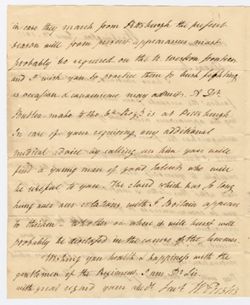 in case they march from Pittsburgh the present
season will from various appearances most
probably be required on the N. western frontier,
and I wish you to practice them to bush fighting
as occasion & convenience may admit. A Dr.
mate to the Regt. is at Pittsburgh
In case of your requiring any additional
medical advice by calling on him you will
find a young man of good talents who will
be useful to you. The cloud which has so long
hung over our relations with G. Britain appears
to thicken. Whether or where it will burst will
probably be disclosed in the course of the summer
Wishing you health & happiness with the
gentlemen of the Regiment, I am Dr. Sir
with great regard your